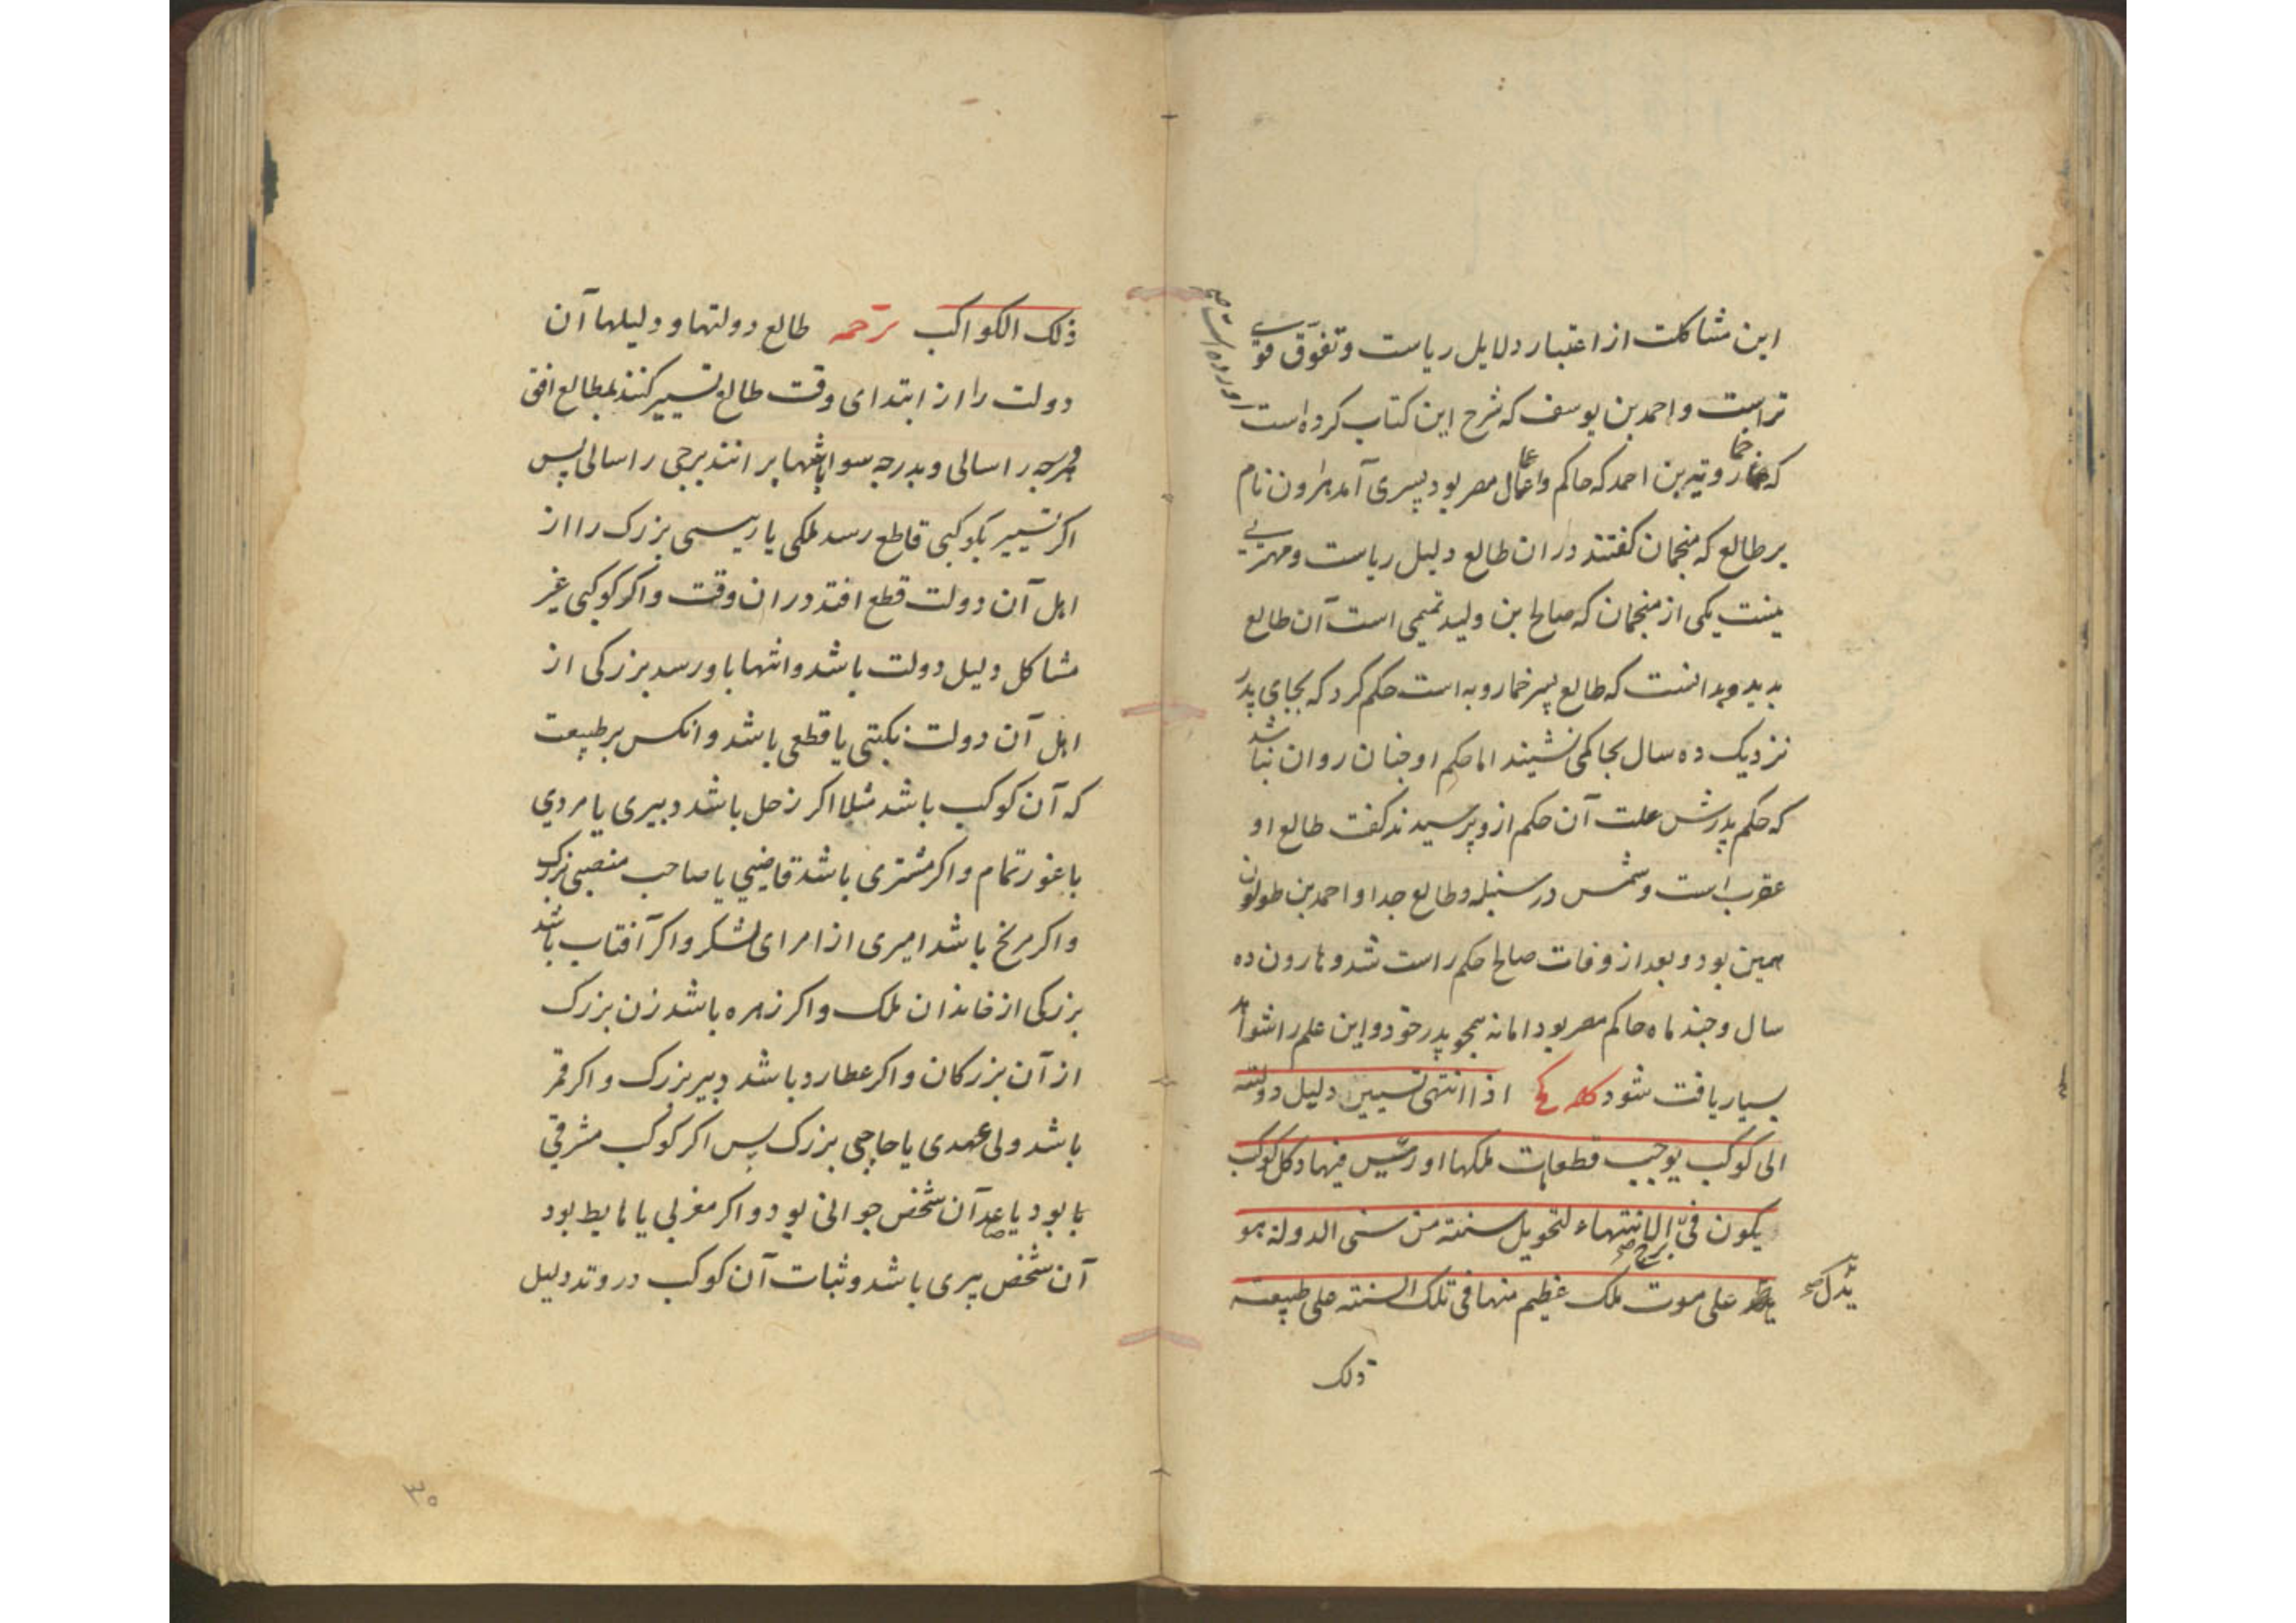 این مشاکلت از اعتبار دلایل ریاست و تفوق قوی
تراست و احمد بن یوسف که شرح این کتاب کرده است
آورده است صح
که خمارویه بن احمد که حاکم و عمال مصر بود پسری آمد هارون نام
بر طالع که منجمان کفتند در ان طالع دلیل ریاست و مهتری
نیست یکی از منجمان که صالح بن ولید تمیمی است آن طالع
بدید و بدانست که طالع پسر خمارویه است حکم کرد که بجای پدر
نزدیک ده سال بحاکمی نشیند اما حکم او چنان روان نباشد
که حکم پدرش علت آن حکم ازو پرسیدند کفت طالع او
عقرب است و شمس در سنبله و طالع جد او احمد بن طولون
همین بود و بعد از وفات صالح حکم راست شد و هارون ده
سال و چند ماه حاکم مصر بود اما نه همچو پدر خود و این علم را شواهد
بسیار یافت شود کلمه اذا انتهی تسییر دلیل دولته
الی کوکب یوجب قطعا مات ملکها او رئیس فیها و کل کوکب
یکون فی برج الانتهاء لتحویل سنته من سنی الدولة هو
یدل صح
علی موت ملک عظیم منها فی تلک السنته علی طبیعته
ذلک
ذلک الکواکب ترجمه طالع دولتها و دلیلها آن
دولت را از ابتدای وقت طالع تسییر کنند بمطالع افق
هر درجه را سالی و بدرجه سوا انتها برانند برجی را سالی پس
اکر تسییر بکوکبی قاطع رسد ملکی یا رییسی بزرک را از
اهل آن دولت قطع افتد در ان وقت و اکر کوکبی غیر
مشاکل دلیل دولت باشد و انتها باو رسد بزرکی از
اهل آن دولت نکبتی یا قطعی باشد و انکس بر طبیعت
که آن کوکب باشد مثلا اکر زحل باشد دبیری یا مردی
با غور تمام و اکر مشتری باشد قاضیی یا صاحب منصبی بزرک
و اکر مریخ باشد امیری از امرای لشکر و اکر آفتاب باشد
بزرکی از خاندان ملک و اکر زهره باشد زن بزرک
از آن بزرکان و اکر عطارد باشد دبیر بزرک و اکر قمر
باشد ولی عهدی یا حاجبی بزرک پس اکر کوکب مشرقی
با بود یا صاعد آن شخص جوانی بود و اکر مغربی یا هابط بود
آن شخص پیری باشد و ثبات آن کوکب در وتد دلیل
۳۵